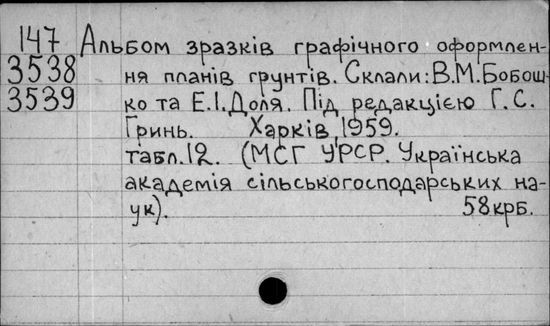 147 Альбом зразків графічного оформлен-
3538 ня планів грунтів. Склали: В.М.Бобош-
3539 ко та Е.І.Доля. Під редакцією Г.С.
Гринь. Харків, 1959.
табл.12. (МСГ УРСР. Українська
академія сільськогосподарських на-
ук). 58крб.